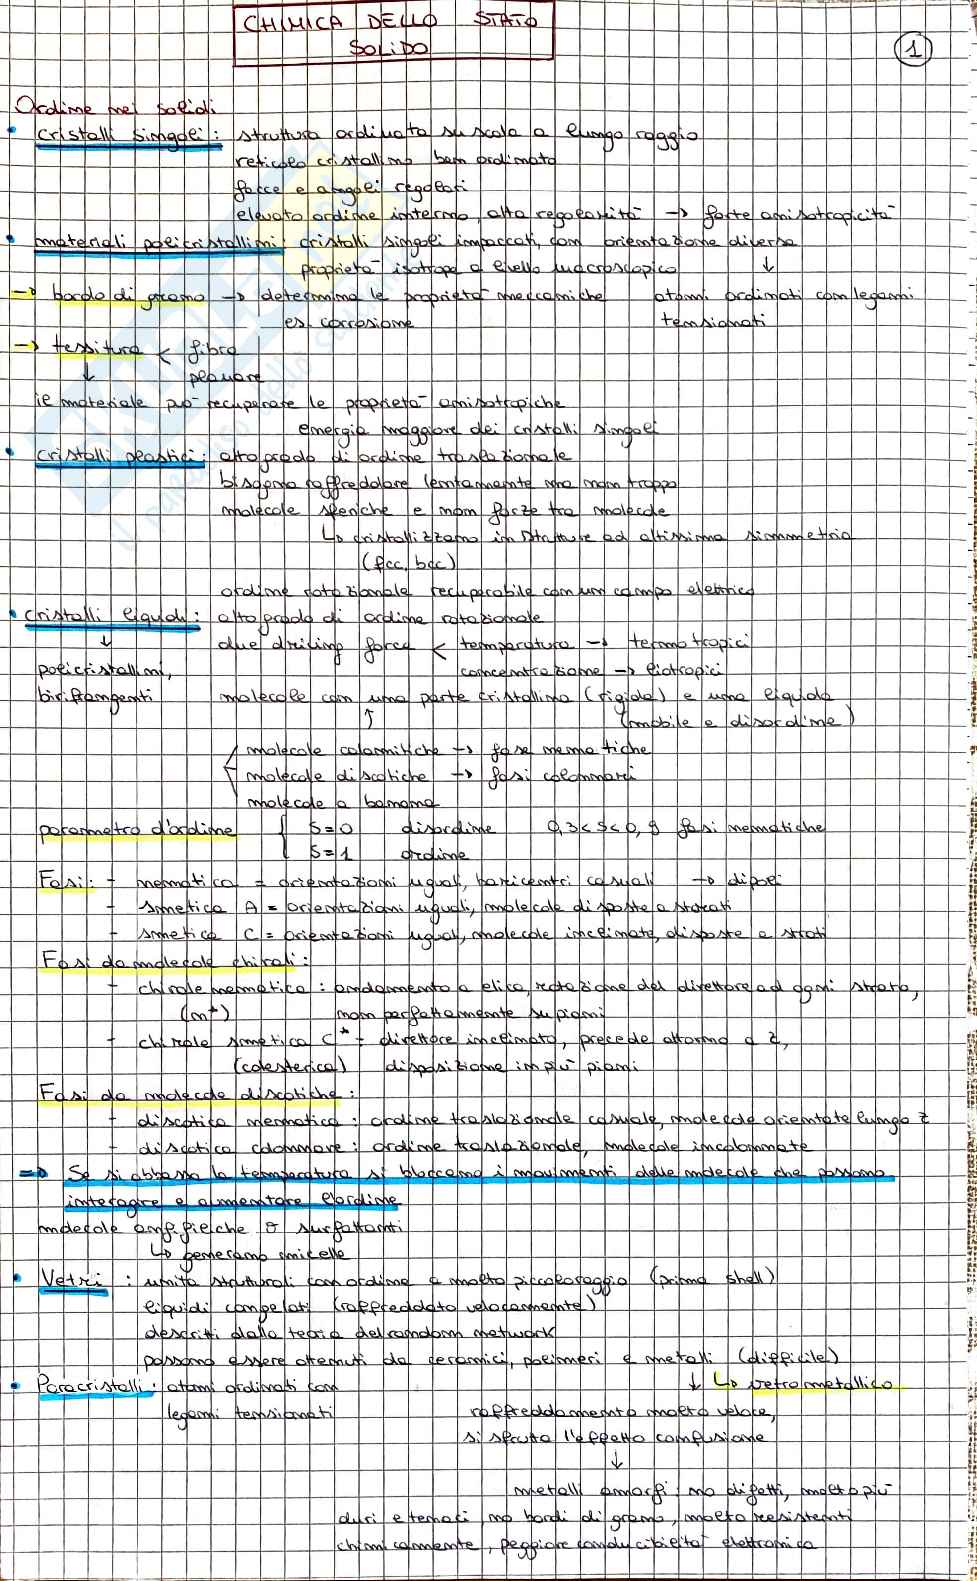 CHIMICA DELLO STATO
SOLIDO
1
Ordine nei solidi
• cristalli singoli: struttura ordinata su scala a lungo raggio
reticolo cristallino ben ordinato
facce e angoli regolari
elevato ordine interno, alta regolarità → forte anisotropicità
• materiali policristallini: cristalli singoli impaccati, con orientazione diversa
proprietà isotrope a livello macroscopico ↓
→ bordo di grano → determina le proprietà meccaniche atomi ordinati con legami
es. corrosione tensionati
→ tessitura < fibra
↓ planare
il materiale può recuperare le proprietà anisotropiche
energia maggiore dei cristalli singoli
• cristalli plastici: alto grado di ordine traslazionale
bisogna raffreddare lentamente ma non troppo
molecole sferiche e non forze tra molecole
↳ cristallizzano in strutture ad altissima simmetria
(fcc, bcc)
ordine rotazionale recuperabile con un campo elettrico
• cristalli liquidi: alto grado di ordine rotazionale
↓ due driving force < temperatura → termotropici
policristallini, concentrazione → liotropici
birifrangenti molecole con una parte cristallina (rigida) e una liquida
↑ (mobile e disordine)
molecole calamitiche → fase nematiche
molecole discotiche → fasi colonnari
molecole a banana
parametro d'ordine { S=0 disordine 0,3<S<0,9 fasi nematiche
S=1 ordine
Fasi: - nematica = orientazioni uguali, baricentri casuali → dipoli
- smetica A = orientazioni uguali, molecole disposte a starati
- smetica C = orientazioni uguali, molecole inclinate, disposte a strati
Fasi da molecole chirali:
- chirale nematica: andamento a elica, rotazione del direttore ad ogni strato,
(n*) non perfettamente su piani
- chirale smetica C* = direttore inclinato, precede attorno a z,
(colesterica) disposizione in più piani
Fasi da molecole discotiche:
- discotica nematica: ordine traslazionale casuale, molecole orientate lungo z
- discotica colonnare: ordine traslazionale, molecole incolonnate
⇒ Se si abbassa la temperatura si bloccano i movimenti delle molecole che possono
interagire e aumentare l'ordine
molecole anfifiliche o surfattanti
↳ generano micelle
• Vetri: unità strutturali con ordine a molto piccolo raggio (prima shell)
liquidi congelati (raffreddato velocemente)
descritti dalla teoria del random network
possono essere ottenuti da ceramici, polimeri e metalli (difficile)
• Paracristalli: atomi ordinati con ↓ ↳ vetro metallico
legami tensionati raffreddamento molto veloce,
si sfrutta l'effetto confusione
↓
metalli amorfi: no difetti, molto più
duri e tenaci, no bordi di grano, molto resistenti
chimicamente, peggiore conducibilità elettronica